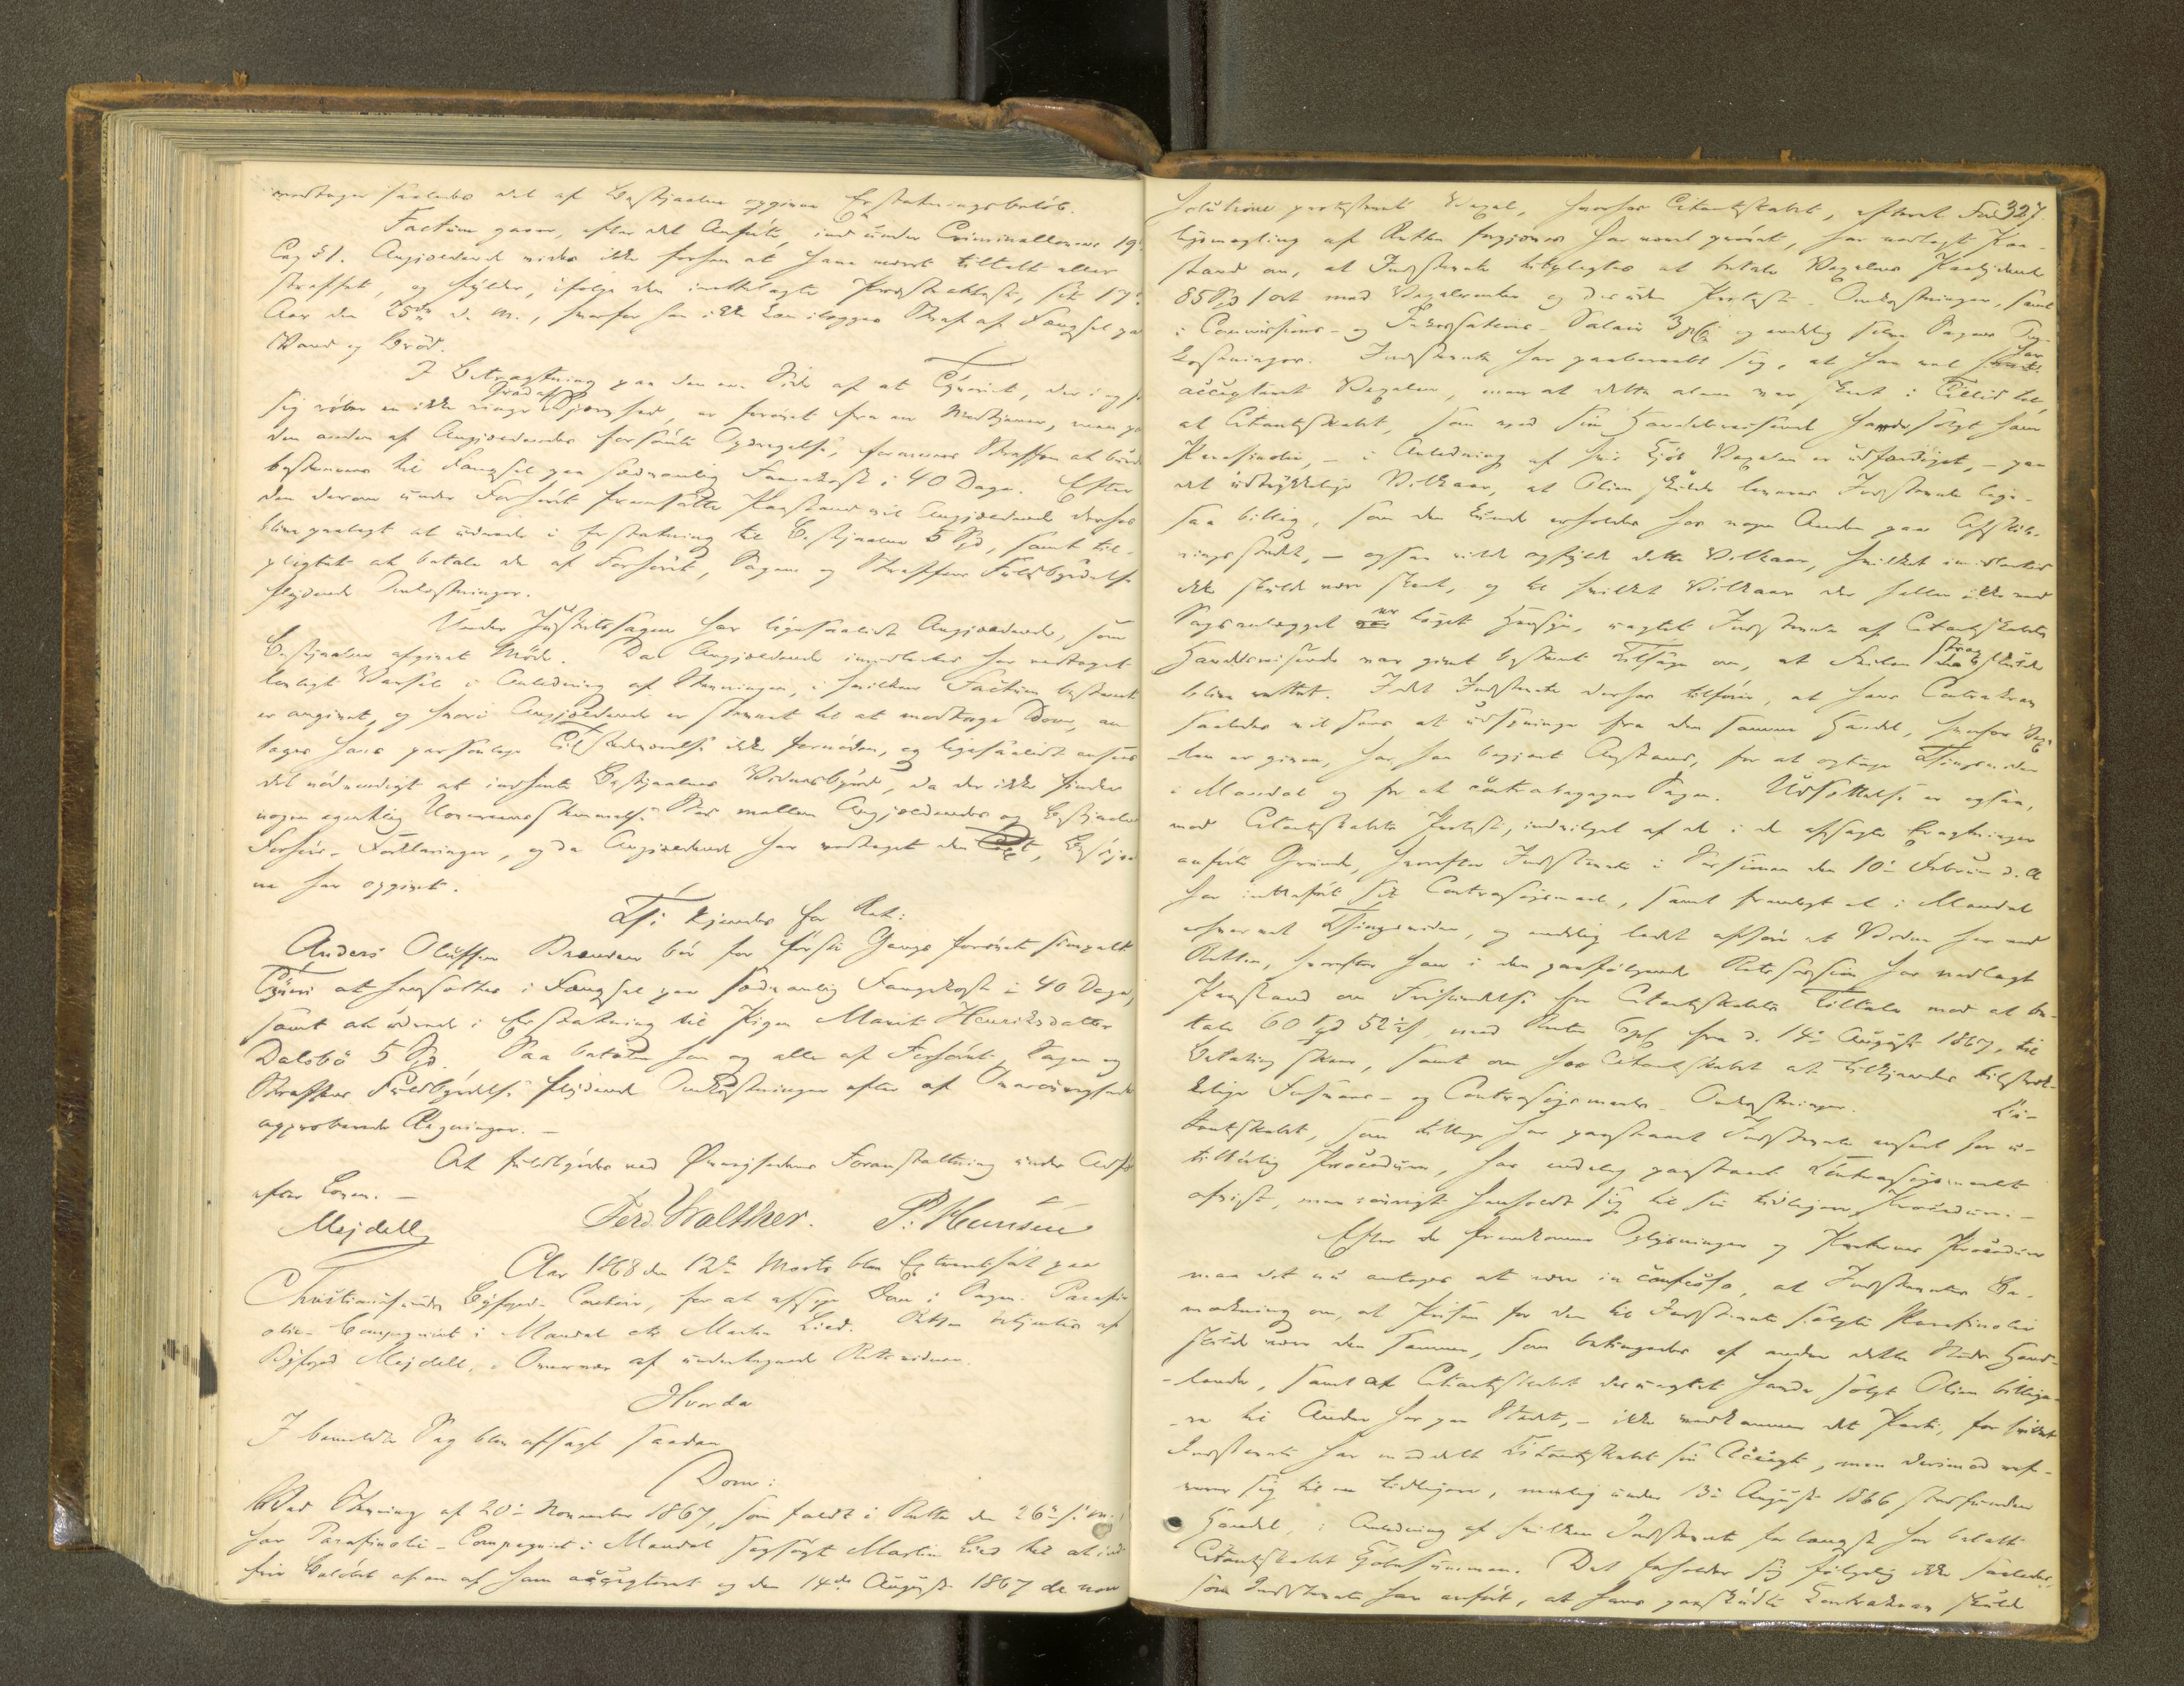 modtager saaledes det af Bestjaalne opgivne Erstatningsbeløb.
Factum gaaer, efter det Anførte, ind under Criminallovens 19
Cap § 1. Angjældende vides ikke forhen at have været tiltalt eller
straffet, og fylder, ifølge den fremlagte Præsteattest, sit 17de
Aar den 25de d. M., hvorfor han ikke kan ilægges Straf af Fængsel paa
Vand og Brød.
I Betragtning paa den ene Side af at Tyveriet, der i og for
sig røber en ikke ringe Grad af Djærvhed, er forøvet fra en Medtjener, men paa
den anden af Angjældendes forsømte Opdragelse, formenes Straffen at burde
bestemmes til Fængsel paa sædvanlig Fangekost i 40 Dage. Efter
den derom under Forhøret fremsatte Paastand vil Angjældende derhos
blive paalagt at udrede i Erstatning til Bestjaalne 5 Spd, samt til-
pligtet at betale de af Forhøret, Sagen og Straffens Fuldbyrdelse
flydende Omkostninger.
Under Justitssagen har ligesaalidt Angjældende, som
Bestjaalne afgivet Møde. Da Angjældende imidlertid har modtaget
lovligt Varsel i Anledning af Stevningen, i hvilken Factum bestemt
er angivet, og hvori Angjældende er stevnet til at modtage Dom, an
tages hans personlige Tilstedeværelse ikke fornøden, og ligesaalidt ansees
det nødvendigt at indhente Bestjaalnes Vidnesbyrd, da der ikke finder
nogen egentlig Uoverensstemmelse Sted mellem Angjældendes og Bestjaalnes
Forhørs-Forklaringer, og da Angjældende har modtaget den Bestjaal
ne har opgivet.
Thi kjendes for Ret:
Anders Oluffsen Braenden bør for første Gangs forøvet simpelt
Tyveri at hensættes i Fængsel paa sædvanlig Fangekost i 40 Dage,
samt at udrede i Erstatning til Pigen Marit Henriksdatter
Dalsbø 5 Spd. Saa betaler han og alle af Forhøret, Sagen og
Straffens Fuldbyrdelse flydende Omkostninger efter af Øvrigheden
approberede Regninger. —
At fuldbyrdes ved Øvrighedens Foranstaltning under Adfærd
efter Loven. —
Mejdell Ferd. Walther. P. Hansen
Aar 1868 den 12te Marts blev Extraret sat paa
Christianssunds Byfoged-Contoir, for at afsige Dom i Sagen Parafin
olie-Compagniet i Mandal ctr Martin Lied. Retten betjentes af
Byfoged Mejdell, i Overvær af undertegnede Retsvidner.
Hvorda
I bemeldte Sag blev afsagt saadan
Dom:
Ved Stevning af 20de November 1867, som faldt i Rette den 26de s. M.,
har Parafinolie-Compagniet i Mandal sagsøgt Martin Lied til at ind
frie Beløbet af en af ham accepteret og den 14de August 1867 de non
327.
solutione protesteret Vexel, hvorhos Citantskabet, efterat For
ligsmægling af Retten forgjæves har været prøvet, har nedlagt Paa-
stand om, at Indstevnte tilpligtes at betale Vexelens Paalydende
85 Spd 1 ort med Vexelrenter og desuden Protest-Omkostninger, samt
i Commissions- og Salair 3 p.C. og endelig Sagens
kostninger. Indstevnte har paaberaabt sig, at han vel har
accepteret Vexelen, men at dette alene var skeet i Tillid til,
at Citantskabet, som ved sin Handelsreisende havde solgt ham
Parafinolie, — i Anledning af hvis Kjøb Vexelen er udfærdiget, — paa
det udtrykkelige Vilkaar, at Olien skulde leveres Indstevnte lige-
saa billig, som den kunde erholdes hos nogen Anden paa
stedet, — ogsaa vilde opfylde dette Vilkaar, hvilket imidlertid
ikke skulde være skeet, og til hvilket Vilkaar der heller ikke ved
Sagsanlægget er taget Hensyn, uagtet Indstevnte af Citantskabets
Handelsreisende var givet bestemt Tilsagn om, at Feilen strax skulde
blive rettet. Idet Indstevnte derhos tilføier, at hans Contrakrav
saaledes vil sees at udspringe fra den samme Handel, hvorfor Vex
len er given, har han begjært Anstand, for at optage Thingsvidne
i Mandal og for at contrasøge Sagen. Udsættelse er ogsaa,
mod Citantskabets Protest, indvilget af de i de afsagte Eragtninger
anførte Grunde, hvorefter Indstevnte i Sessionen den 10de Februar d. A
har indført sit Contrasøgsmaal, samt fremlagt et i Mandal
erhvervet Thingsvidne, og endelig ladet afhøre et Vidne her ved
Retten, hvorefter han i den paafølgende Retssession har nedlagt
Paastand om Frifindelse for Citantskabets Tiltale mod at be-
tale 60 Spd 52 s, med Renter 6 pC fra d. 14de August 1867, til
Betaling skeer, samt om hos Citantskabet at tilkjendes tilstræk-
kelige Hoved- og Contrasøgsmaals-Omkostninger. Ci-
tantskabet, som tillige har paastaaet Indstevnte anseet for u-
tilbørlig Procedure, har endelig paastaaet Contrasøgsmaalet
afvist, men iøvrigt henholdt sig til sin tidligere Procedure. —
Efter de fremkomne Oplysninger og Parternes Procedure
maa det nu antages at være in confesso, at Indstevntes Be-
mærkning om, at Prisen for den til Indstevnte solgte Parafinolie
skulde være den samme, som betingedes af andre dette Steds Hand-
lende, samt at Citantskabet desuagtet havde solgt Olien billige-
re til Andre her paa Stedet, — ikke vedkommer det Parti, for hvilket
Indstevnte har meddelt Citantskabet sin Accept, men derimod ref-
ererer sig til en tidligere, nemlig under 13de August 1866 stedfunden
Handel, i Anledning af hvilken Indstevnte forlængst har betalt
Citantskabet Kjøbesummen. Det forholder sig følgelig ikke saaledes,
som Indstevnte har anført, at hans paaskudte Contrakrav skulde